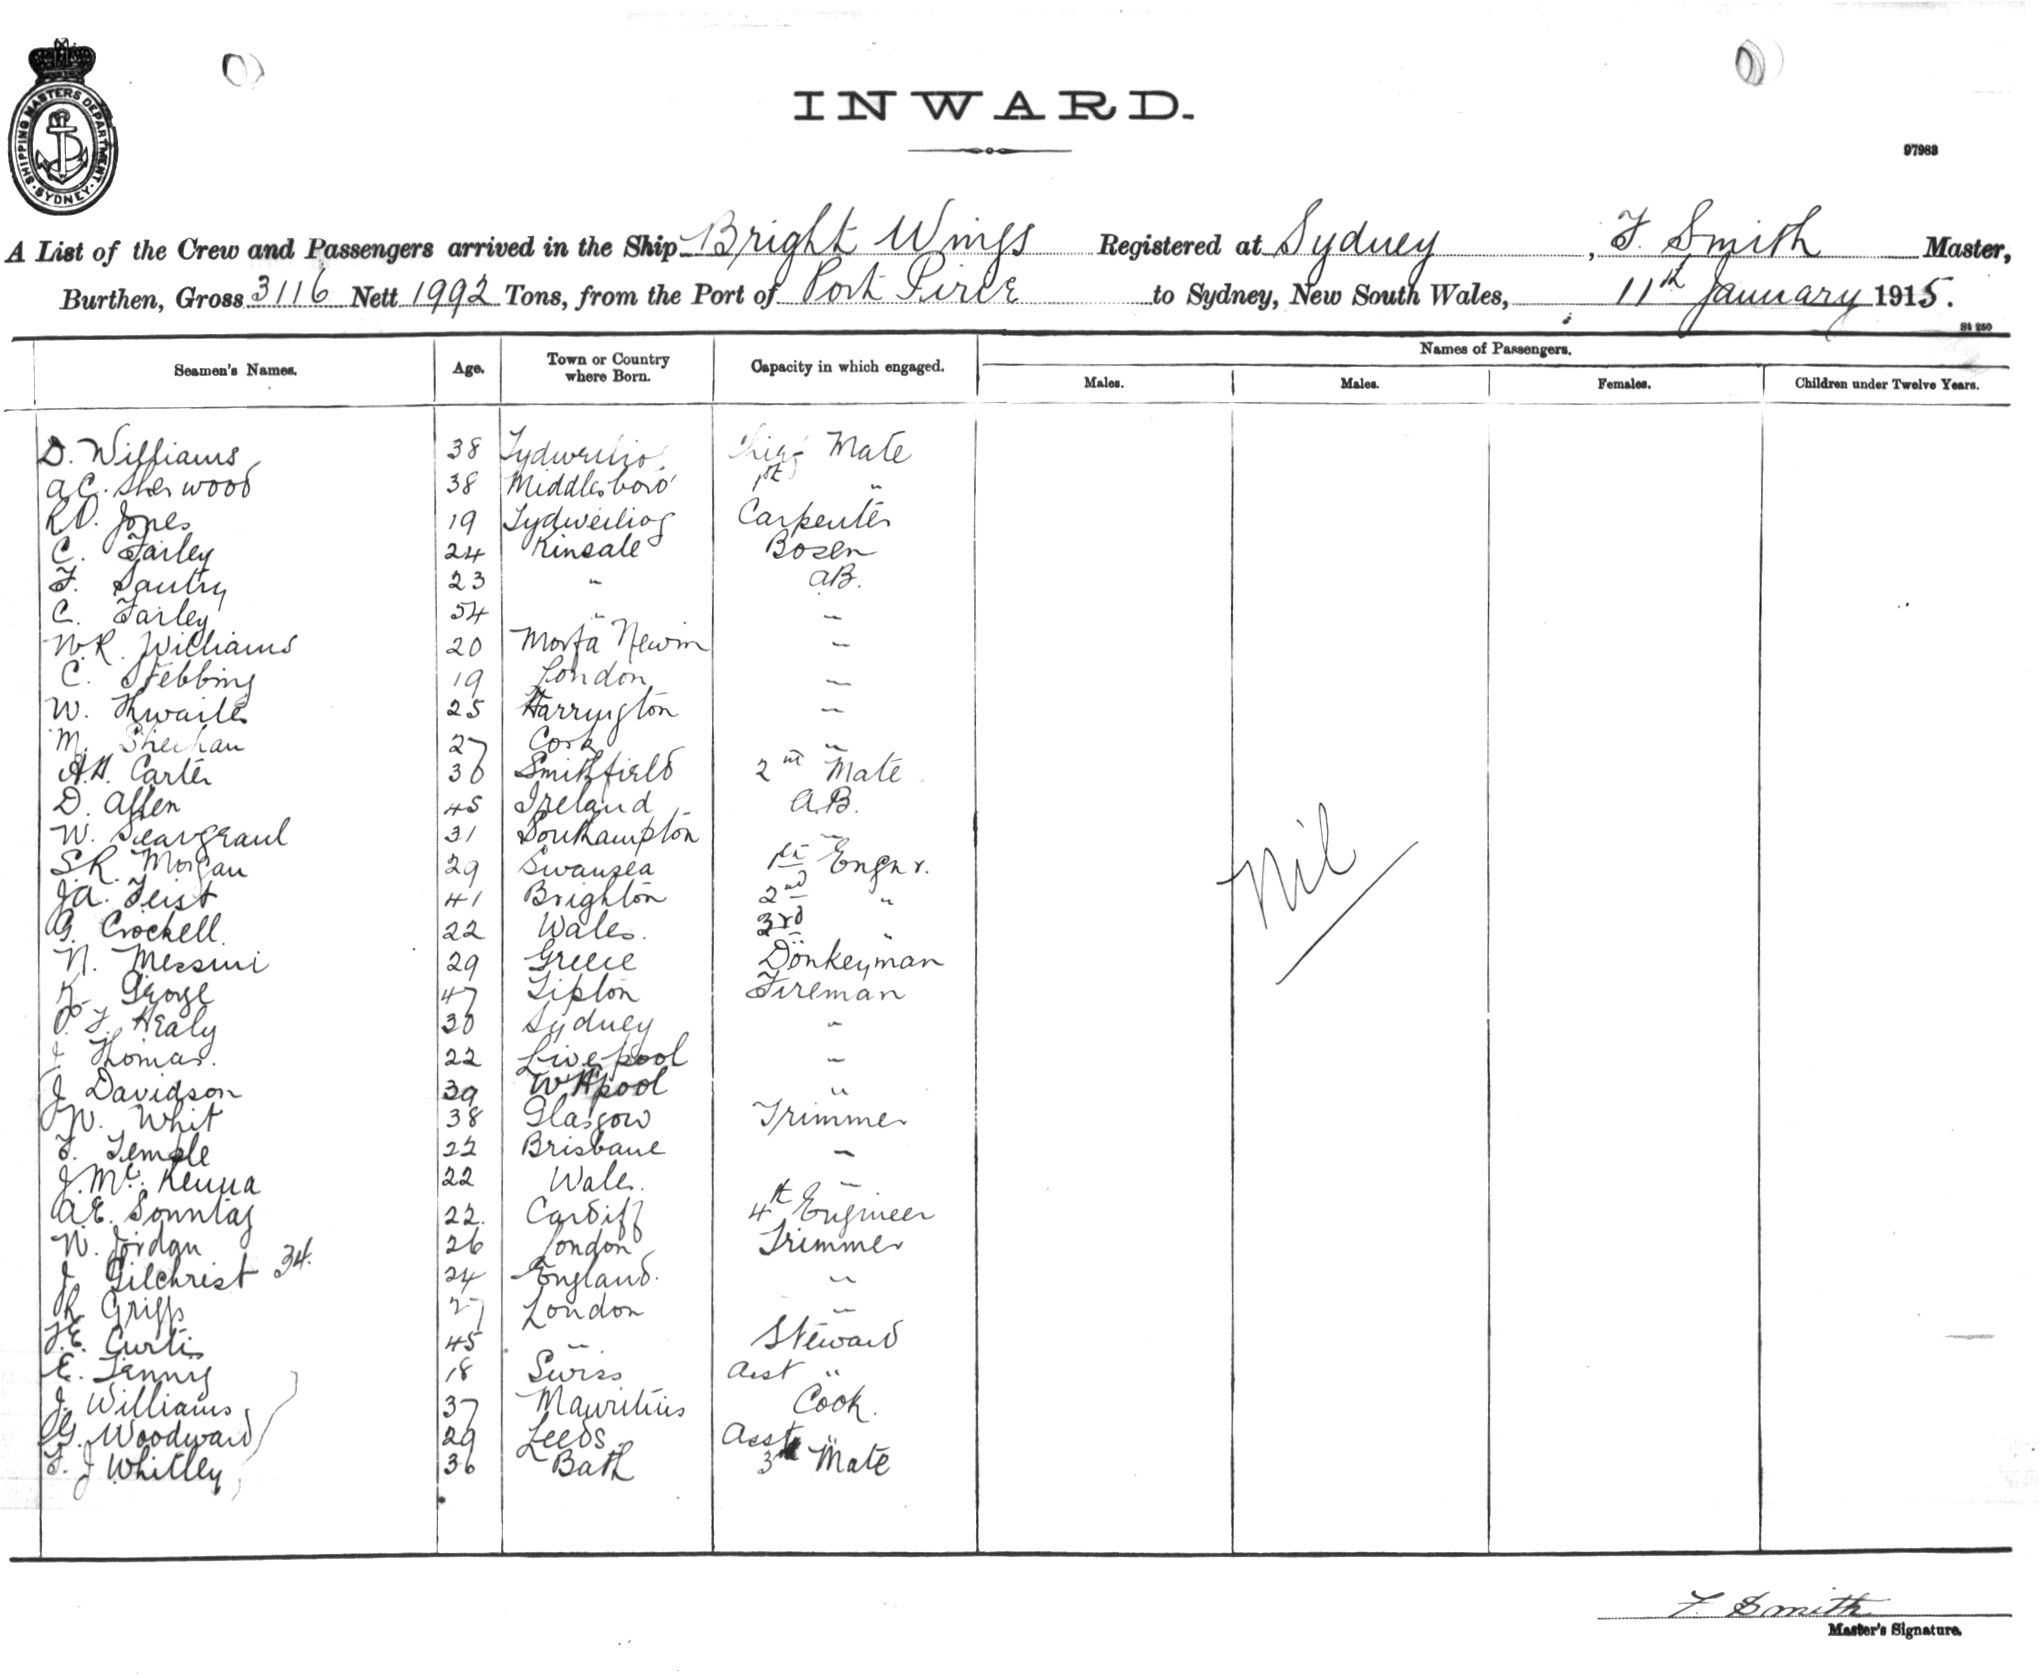 SHIPPING MASTERS DEPARTMENT. SYDNEY
INWARD.
97983
A List of the Crew and Passengers arrived in the Ship Bright Wings Registered at Sydney, F. Smith Master,
Burthen, Gross 3116 Nett 1992 Tons, from the Port of Port Pirie to Sydney, New South Wales, 11th January 1915.
St 250
Seamen's Names. Age. Town or Country where Born. Capacity in which engaged. Names of Passengers.
Males. Males. Females. Children under Twelve Years.
D. Williams 38 Chief Mate
A.C. Sherwood 38 Middlesboro' 1st "
R.D. Jones 19 Carpenter
C. Farley 24 Kinsale Bosen
F. Santry 23 " AB.
C. Farley 54 " "
W.R. Williams 20 Morfa Nevin "
C. Stebbing 19 London "
W. Thwaites 25 Harrington "
M. Sheehan 27 Cork "
A.H. Carter 30 Smithfield 2nd Mate
D. Allen 45 Ireland A.B.
W. 31 Southampton "
S.R. Morgan 29 Swansea 1st Engnr.
J.A. Feist 41 Brighton 2nd "
G. Crockell 22 Wales. 3rd "
N. Messini 29 Greece Donkeyman
K. George 47 Lipton Fireman
P. F. Healy 30 Sydney "
J Thomas. 22 Liverpool "
J Davidson 39 W H'pool "
W. Whit 38 Glasgow Trimmer
F. Temple 22 Brisbane "
J. McKenna 22 Wales. "
A.E. Sonntag 22. Cardiff 4th Engineer
W. Jordan 26 London Trimmer
J Gilchrist 34. 24 England. "
R Griffs 27 London "
F.E. Curtis 45 " Steward
E. 18 Swiss Asst "
J. Williams 37 Mauritius Cook.
G. Woodward 29 Leeds. Asst "
F. J Whitley 36 Bath 3rd Mate
Nil
F Smith
Master's Signature.